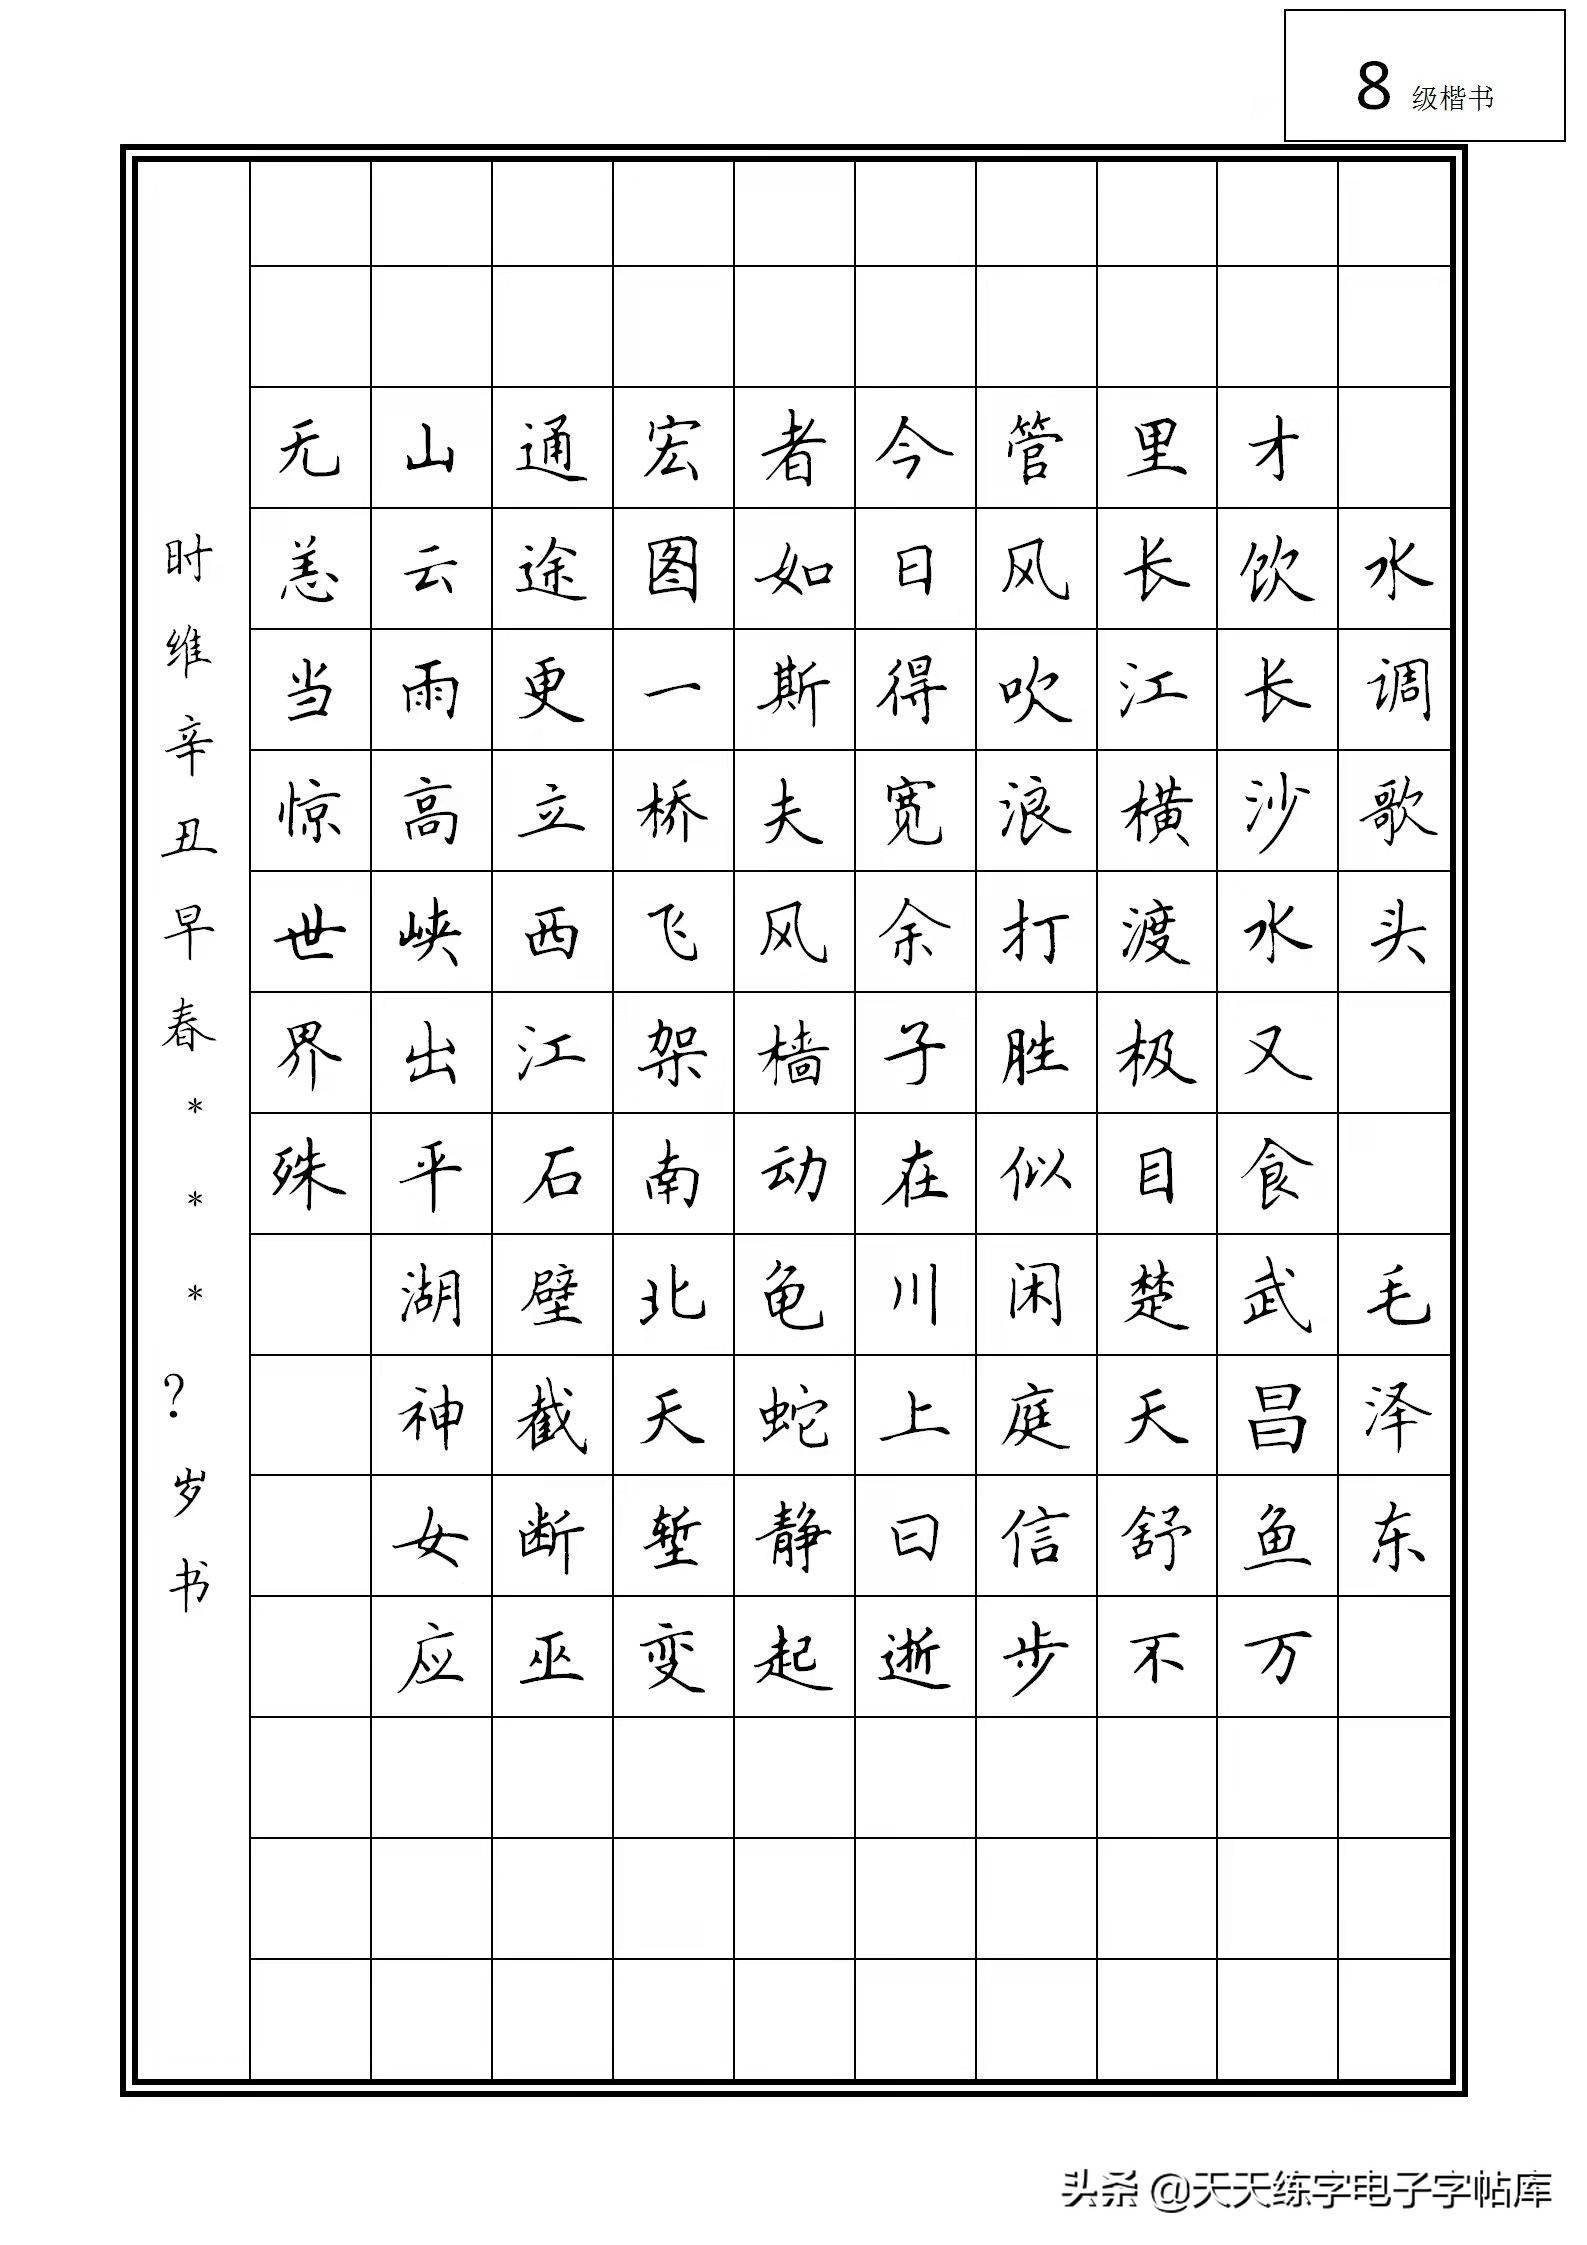 8 级楷书
水调歌头 毛泽东
才饮长沙水又食武昌鱼万
里长江横渡极目楚天舒不
管风吹浪打胜似闲庭信步
今日得宽余子在川上曰逝
者如斯夫风樯动龟蛇静起
宏图一桥飞架南北天堑变
通途更立西江石壁截断巫
山云雨高峡出平湖神女应
无恙当惊世界殊
时维辛丑早春***?岁书
头条 @天天练字电子字帖库